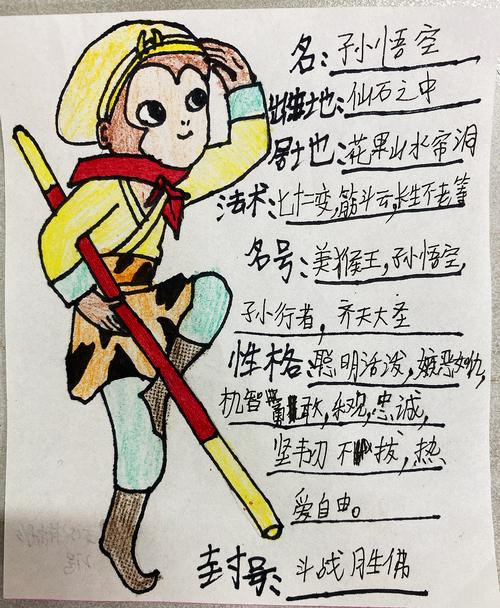 名：孙悟空
出生地：仙石之中
居士地：花果山水帘洞
法术：七十二变,筋斗云,长生不老等
名号：美猴王,孙悟空,
孙行者，齐天大圣
性格：聪明活泼，嫉恶如仇,
机智勇敢,乐观,忠诚,
坚韧不拔,热
爱自由。
封号：斗战胜佛